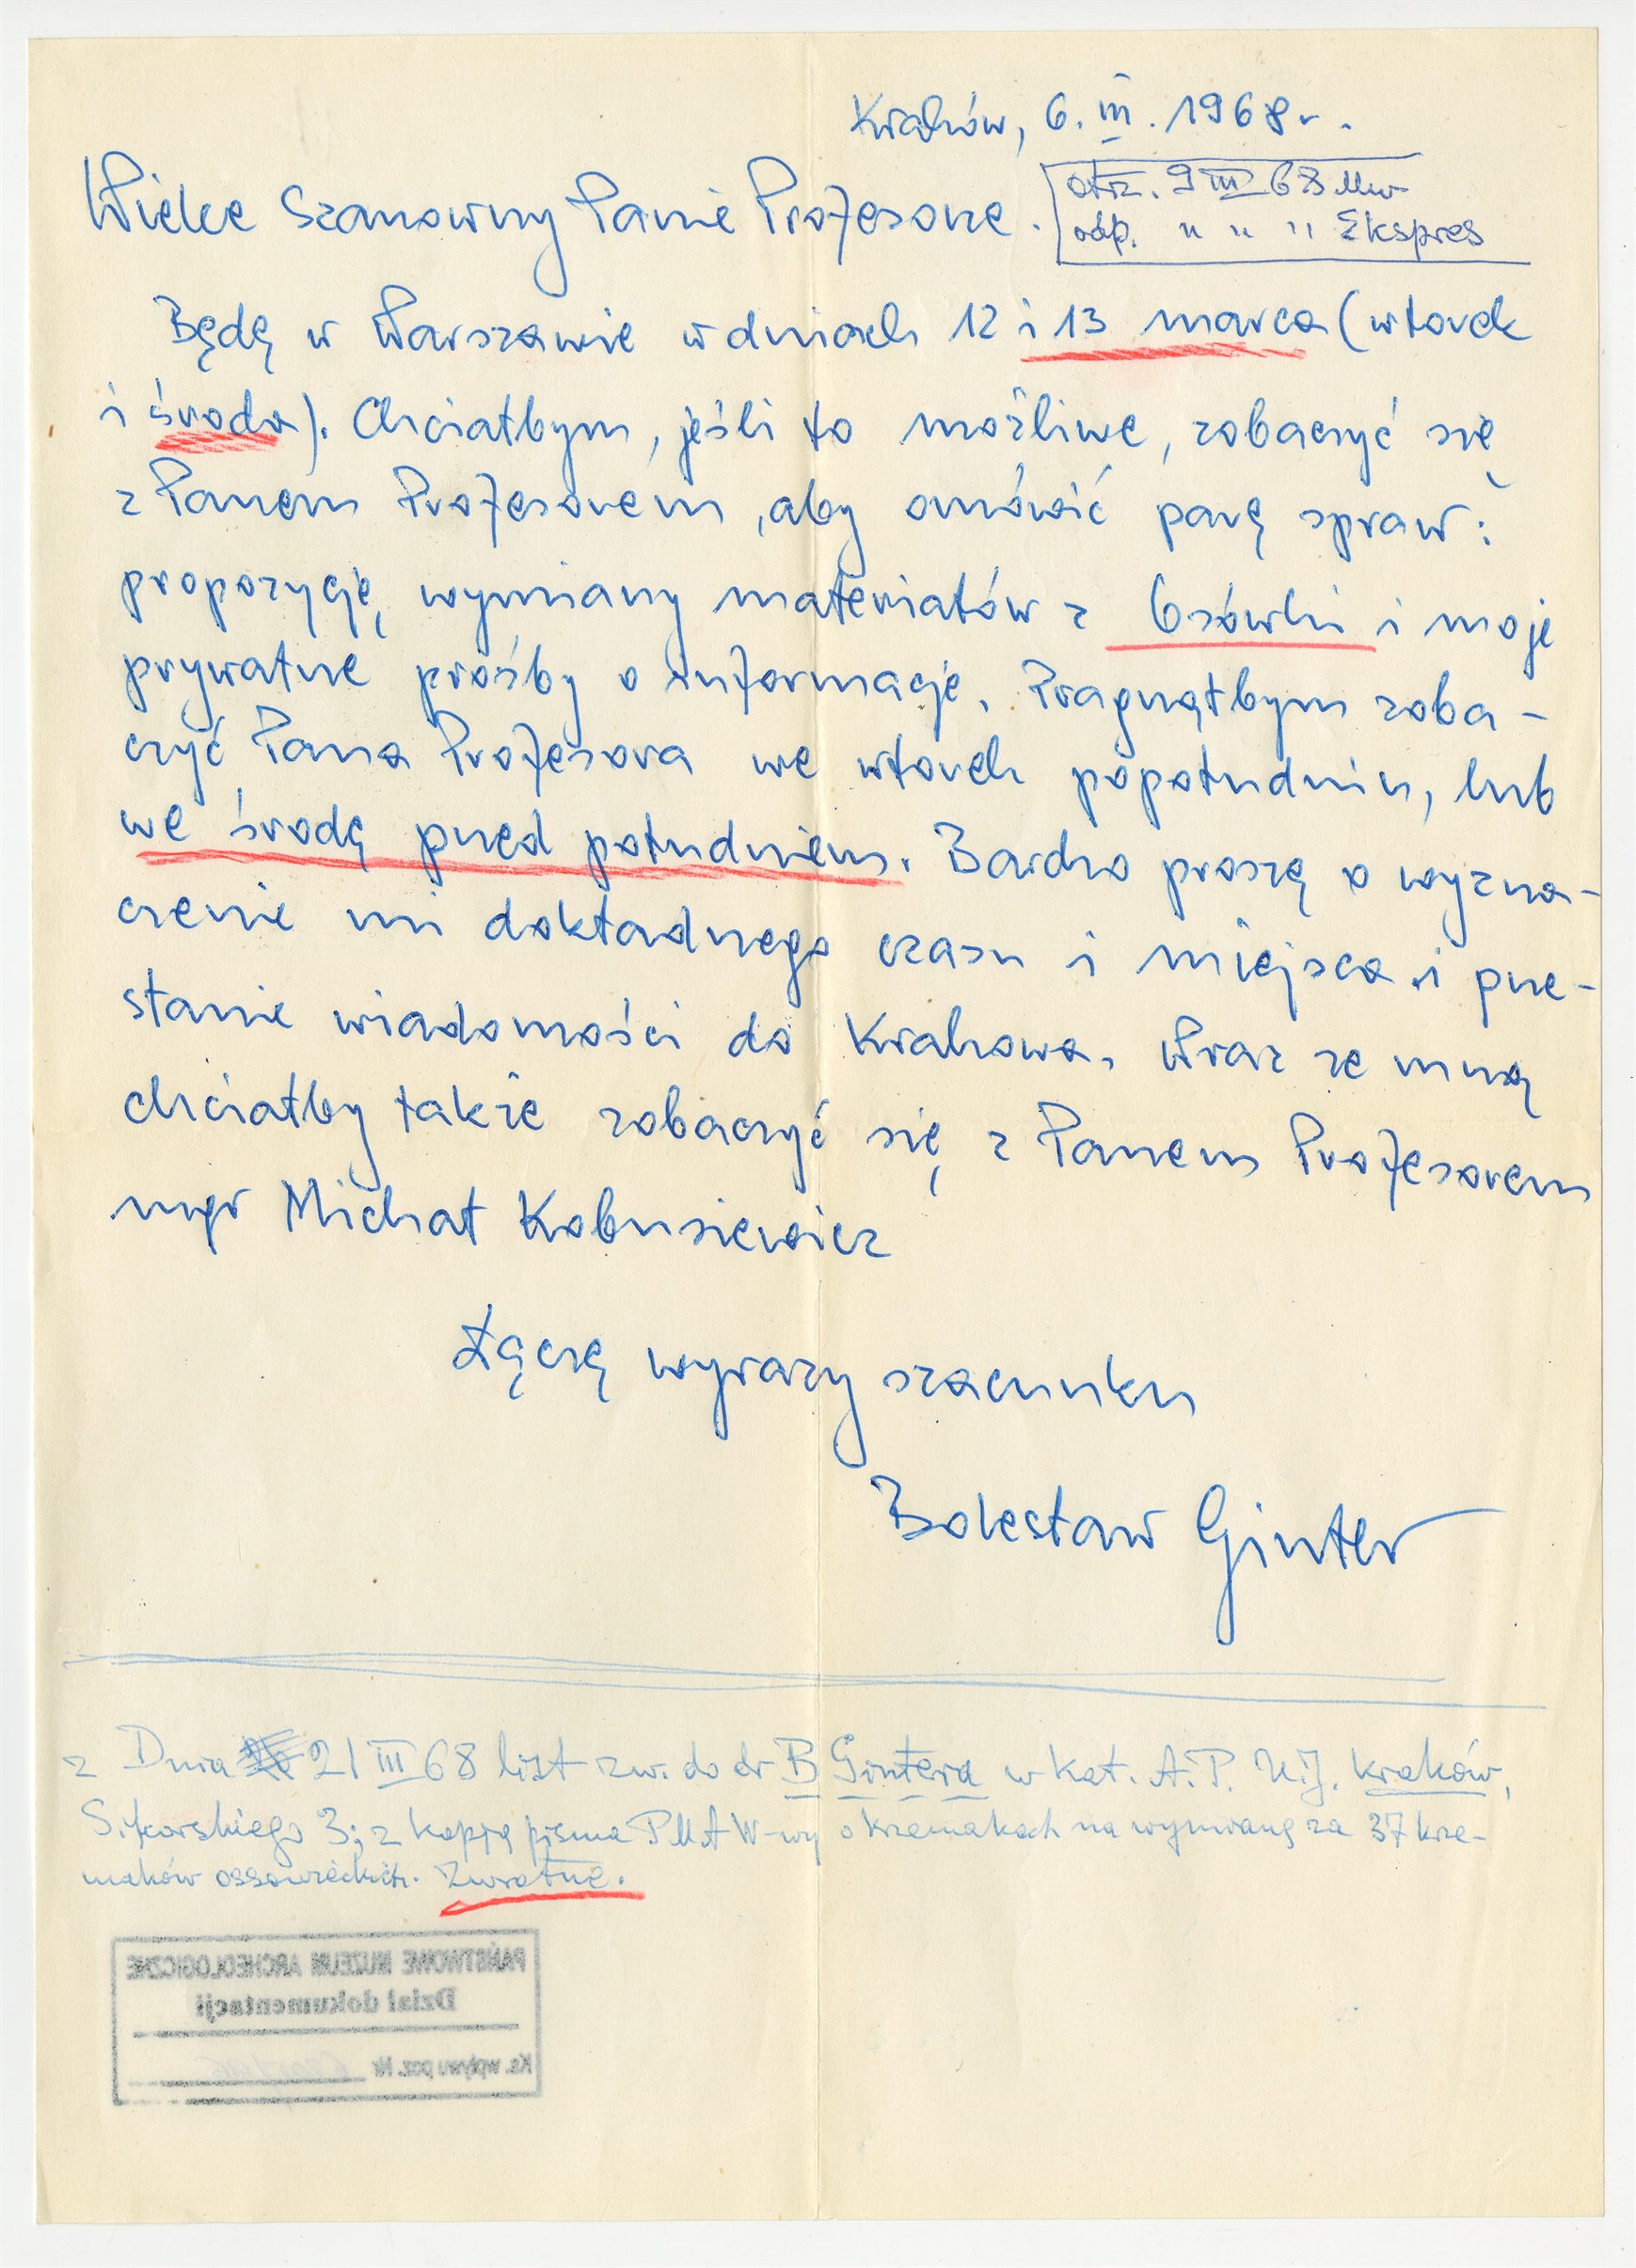 Kraków, 6. III. 1968 r.
Wielce Szanowny Panie Profesorze.
otrz. 9 III 68
odp. " " " Ekspres
Będę w Warszawie w dniach 12 i 13 marca (wtorek
i środa). Chciałbym, jeśli to możliwe, zobaczyć się
z Panem Profesorem, aby omówić parę spraw:
propozycję wymiany materiałów z Osówki i moje
prywatne prośby o informacje. Pragnąłbym zoba-
czyć Pana Profesora we wtorek popołudniu, lub
we środę przed południem. Bardzo proszę o wyzna-
czenie mi dokładnego czasu i miejsca i prze-
słanie wiadomości do Krakowa. Wraz ze mną
chciałby także zobaczyć się z Panem Profesorem
mgr Michał Kobusiewicz
Łączę wyrazy szacunku
Bolesław Ginter
z Dnia 21 III 68 list zw. do dr B Gintera w Kat. A. P. U.J. Kraków,
Sikorskiego 3; z kopją pisma PMA W-wy o krzemakach na wymianę za 37 krze-
maków ossowieckich. Zwrotne.
PAŃSTWOWE MUZEUM ARCHEOLOGICZNE
Dział dokumentacji
Ks. wpływu poz. Nr